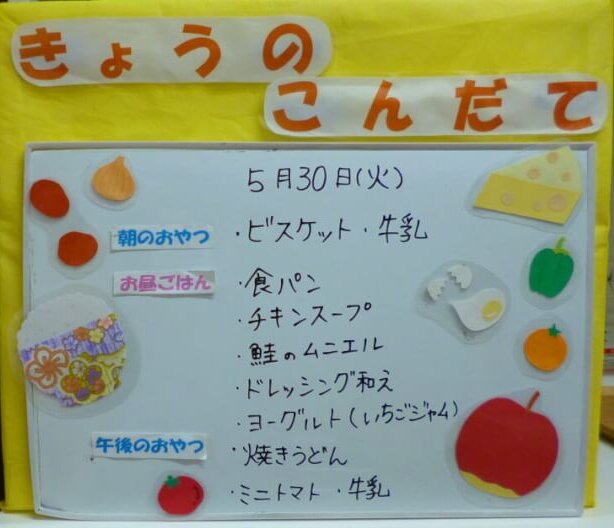 きょうの
こんだて
5月30日(火)
朝のおやつ ・ビスケット・牛乳
お昼ごはん ・食パン
・チキンスープ
・鮭のムニエル
・ドレッシング和え
・ヨーグルト(いちごジャム)
午後のおやつ ・焼きうどん
・ミニトマト・牛乳